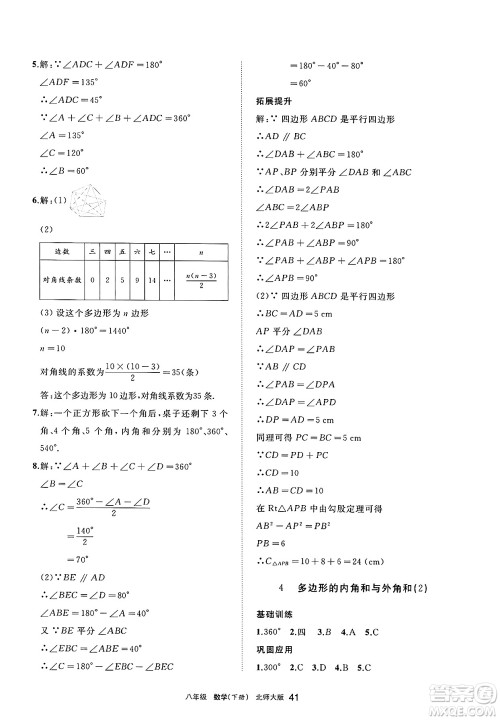 5.解:∵∠ADC+∠ADF=180°
∠ADF=135°
∴∠ADC=45°
∵∠A+∠C+∠B+∠ADC=360°
∠A=135°
∴∠B=60°
6.解:(1)
(2)
边数 三 四 五 六 七 … n
对角线条数 0 2 5 9 14 … n(n−3)/2
(3)设这个多边形为 n 边形
(n−2)·180°=1440°
n=10
对角线的系数为 10×(10−3)/2=35(条)
答:这个多边形为 10边形,对角线为35条.
7.解:一个正方形砍下一个角后,桌子还剩下3个
角、4个角、5个角,内角和分别为180°、360°、
540°.
8.解:∵∠A+∠B+∠C+∠D=360°
∠B=∠C
∴∠C=(360°−∠A−∠D)/2
=140°/2
=70°
(2)∵BE∥AD
∴∠A+∠ABE=180°
∴∠ABE=40°
又∵BE平分∠ABC
∴∠ABE=∠EBC=40°
∠ABC=80°
=180°−40°−80°
=60°
拓展提升
解:∵四边形 ABCD 是平行四边形
∴DA∥BC
∴∠DAB+∠ABC=180°
∵AP、BP 分别平分∠DAB 和∠ABC
∴∠DAB=2∠PAB
∠ABC=2∠PBA
∴2∠PAB+2∠PBA=180°
∴∠PAB+∠PBA=90°
∴∠APB=90°
(2)∵四边形 ABCD 是平行四边形
∴BC=AD=5 cm
AP 平分∠DAB
∴∠DAP=∠PAB
∵AB∥CD
∴∠PAB=∠DPA
∴∠DAP=∠DPA
∴AD=DP=5 cm
同理可得 PC=BC=5 cm
∴AB=CD=10
在 Rt△APB 中由勾股定理可得
AB²−AP²=BP²
PB=6
∴C△APB=10+8+6=24(cm)
4 多边形的内角和与外角和(2)
基础训练
1.360° 2.四 3.B 4.B 5.C
巩固应用
1.300° 2.360° 3.C 4.A 5.C
八年级 数学(下册) 北师大版 41